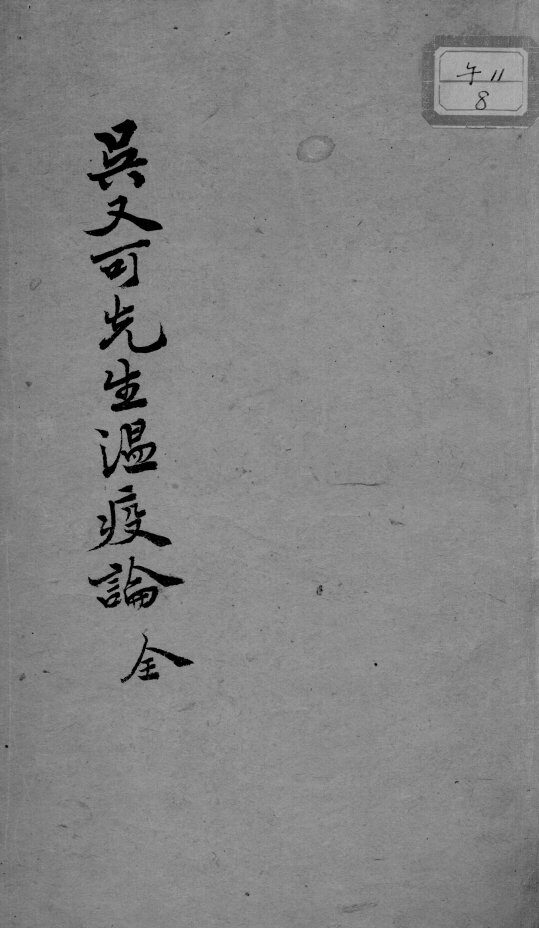 午11
8
吳又可先生温疫論 全